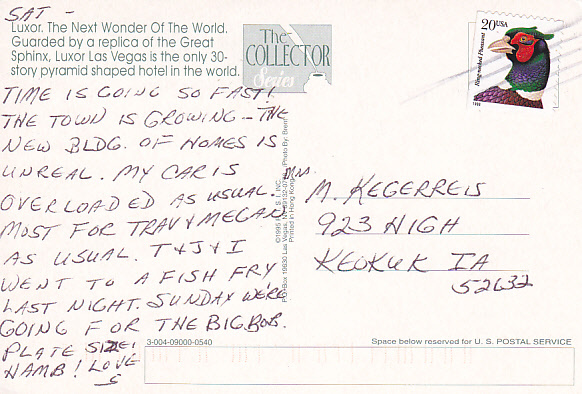 SAT -
Luxor. The Next Wonder Of The World.
Guarded by a replica of the Great
Sphinx, Luxor Las Vegas is the only 30-
story pyramid shaped hotel in the world.
The
COLLECTOR
Series
20 USA
Ring-necked Pheasant
TIME IS GOING SO FAST!
THE TOWN IS GROWING - THE
NEW BLDG. OF HOMES IS
UNREAL. MY CAR IS
OVERLOADED AS USUAL.
MOST FOR TRAV & MEGAN
AS USUAL. T & J & I
WENT TO A FISH FRY
LAST NIGHT. SUNDAY WERE
GOING FOR THE BIG BOB.
PLATE SIZE
HAMB! LOVE
S
MRS.
M. KEGERREIS
923 HIGH
KEOKUK IA
52632
©1995 INC.
P.O. Box 19830 Las Vegas,
Printed in Hong Kong
3-004-09000-0540
Space below reserved for U.S. POSTAL SERVICE